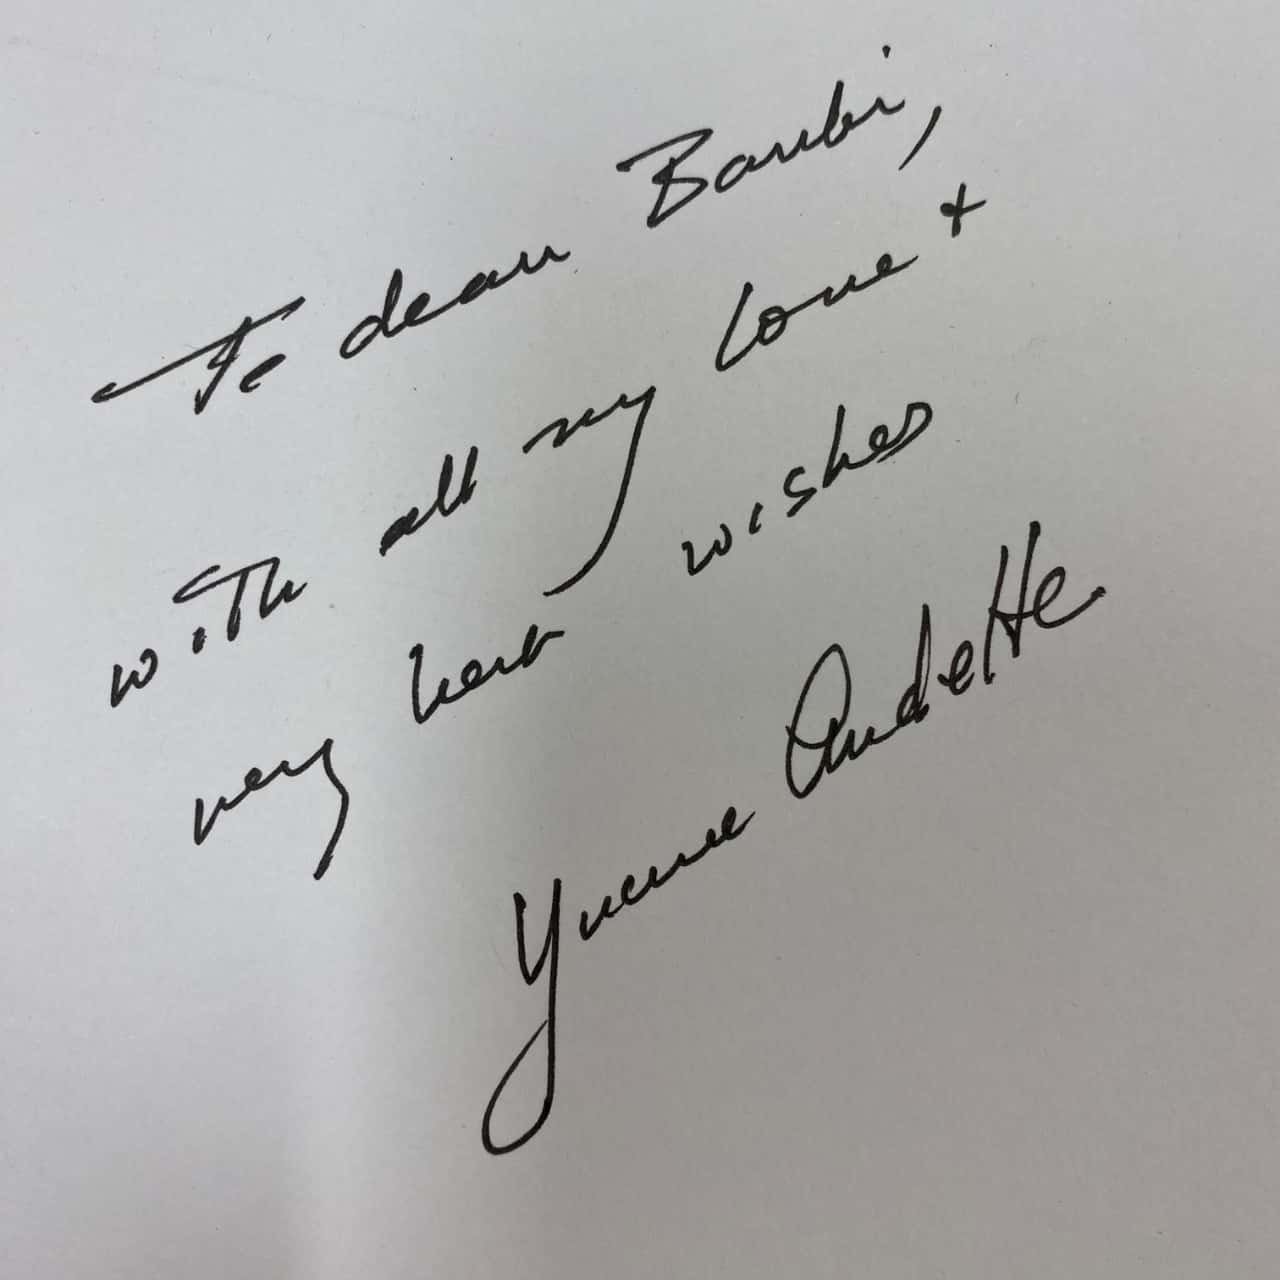 To dear Bambi,
with all my love +
very best wishes
Yvonne Audette